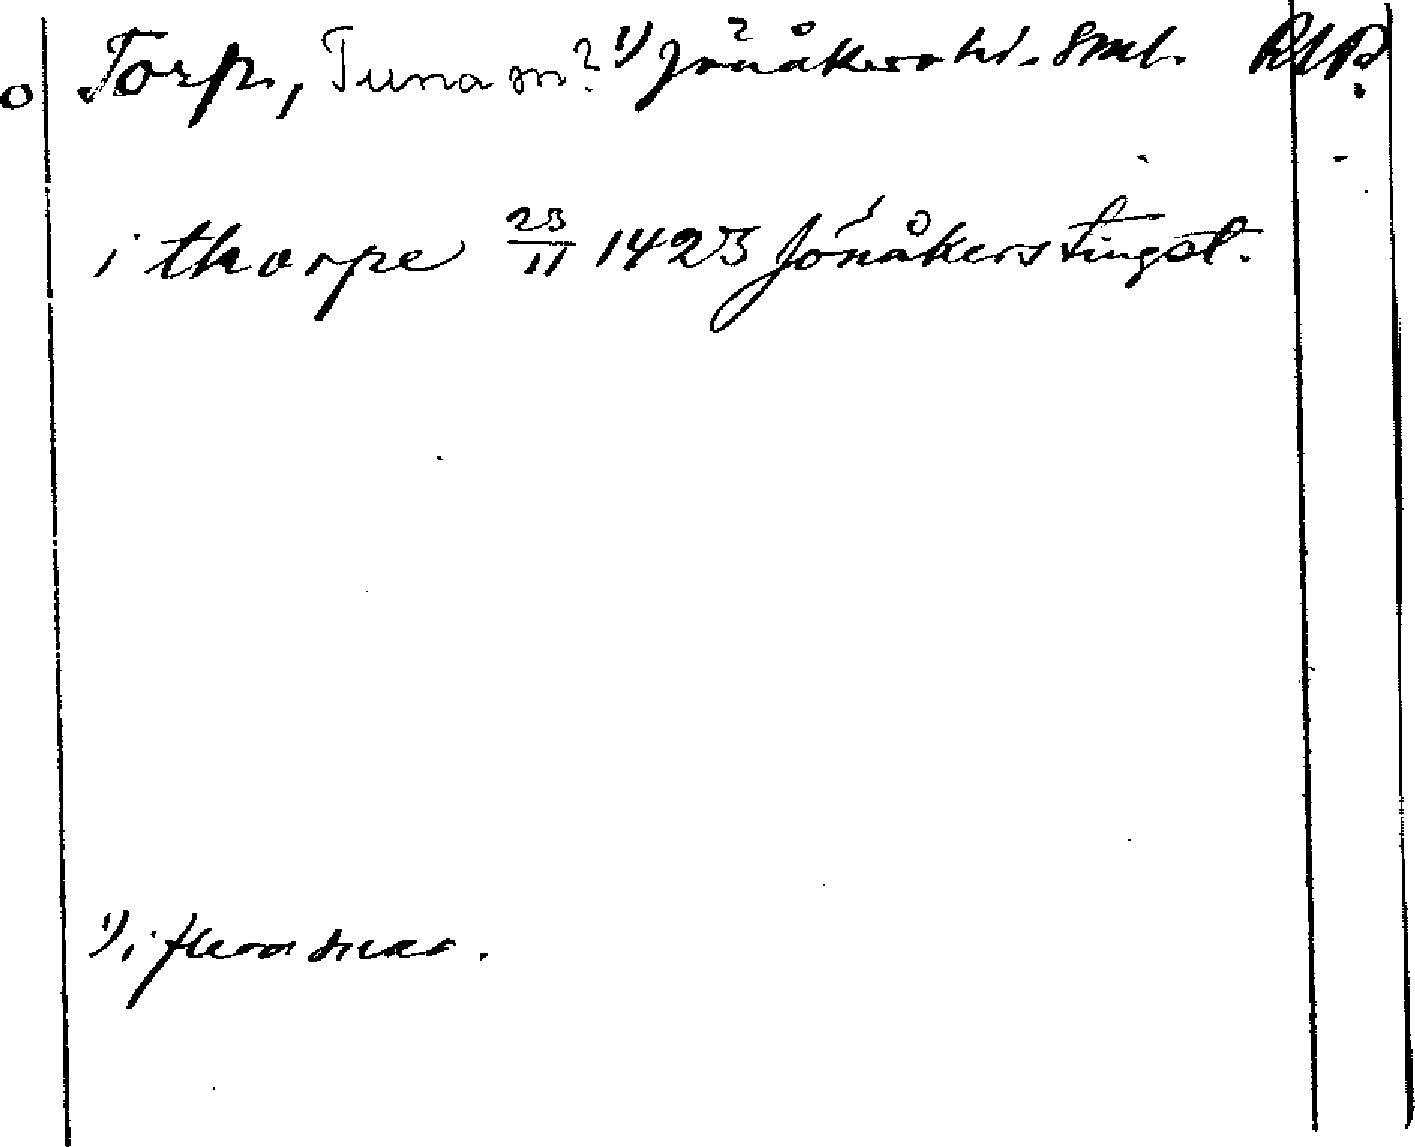 Torp, Tuna sn? 1) Jönåkers hd. Sml. RAP.
i thorpe 23/11 1423 Jönåkers tingst.
1) i flera snar.